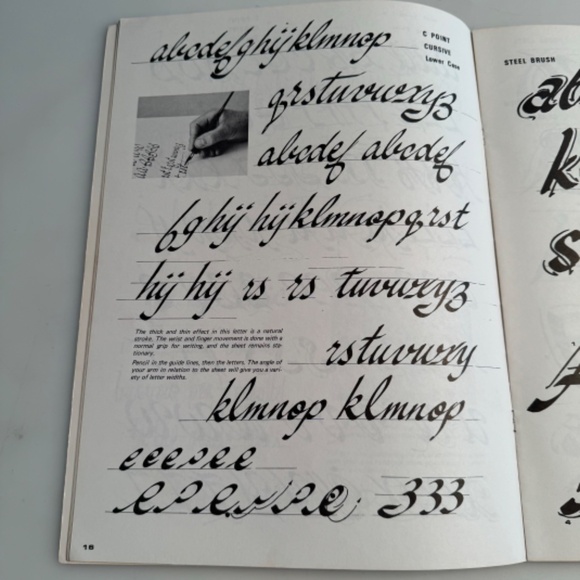 abcdefghijklmnop
C POINT
CURSIVE
Lower Case
qrstuvwxyz
abcdef abcdef
fg hij hijklmnopqrst
hij hij rs rs tuvwxyz
The thick and thin effect in this letter is a natural
stroke. The wrist and finger movement is done with a
normal grip for writing, and the sheet remains sta-
tionary.
Pencil in the guide lines, then the letters. The angle of
your arm in relation to the sheet will give you a vari-
ety of letter widths.
rstuvwxy
klmnop klmnop
333
18
STEEL BRUSH